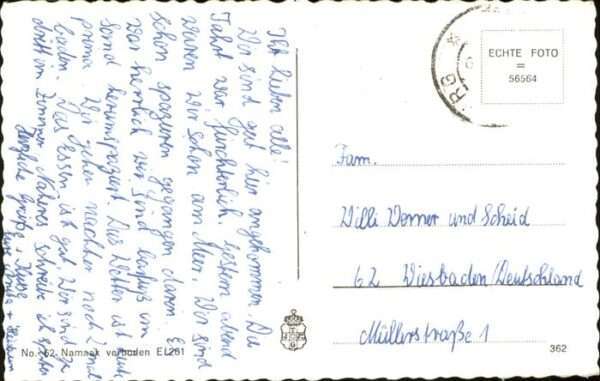 Ihr Lieben alle!
Wir sind gut hier angekommen. Die
Fahrt war fürchterlich. Gestern abend
waren wir schon am Meer. Wir sind
schon spazieren gegangen darin. Es
war herrlich wir sind barfuß im
Sand herumspaziert. Das Wetter ist
prima. Wir gehen nachher noch 2 mal
baden. Das Essen ist gut. Wir sind zu
dritt im Zimmer. Näheres schreibe ich später
Herzliche Grüße + Küsse
ECHTE FOTO
=
56564
Fam.
Willi Werner und Scheid
62 Wiesbaden/Deutschland
Müllerstraße 1
No. 62 Namaak verboden EL261
362